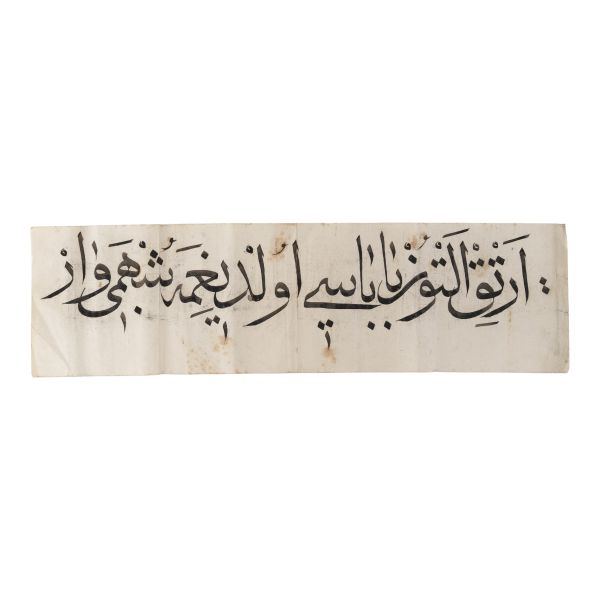 ارتق التوز باباسي اولديغمه شبهمي وار